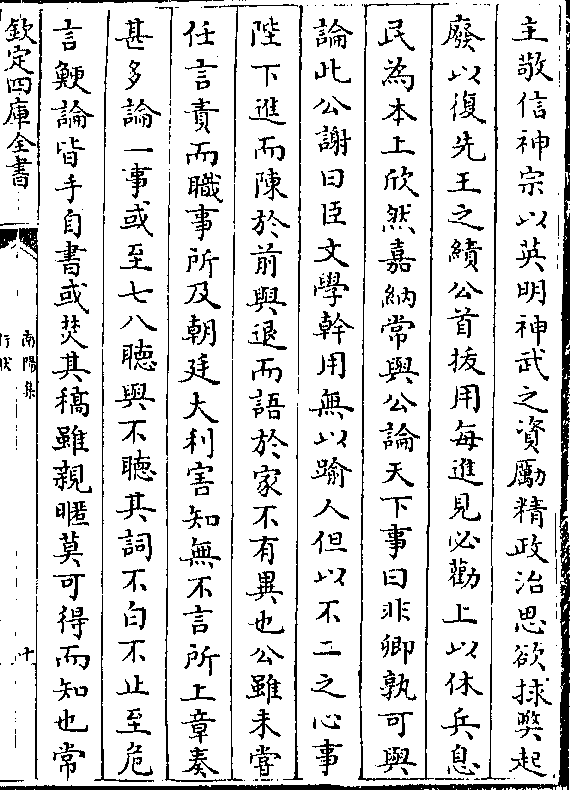 主敬信神宗以英明神武之資勵精政治思欲捄獘起
廢以復先王之績公首拔用每進見必勸上以休兵息
民為本上欣然嘉納常與公論天下事曰非卿孰可與
論此公謝曰臣文學幹用無以踰人但以不二之心事
陛下進而陳於前與退而語於家不有異也公雖未嘗
任言責而職事所及朝廷大利害知無不言所上章奏
甚多論一事或至七八聽與不聽其詞不白不止至危
言鯁論皆手自書或焚其稿雖親暱莫可得而知也常
欽定四庫全書
南陽集
行狀
十